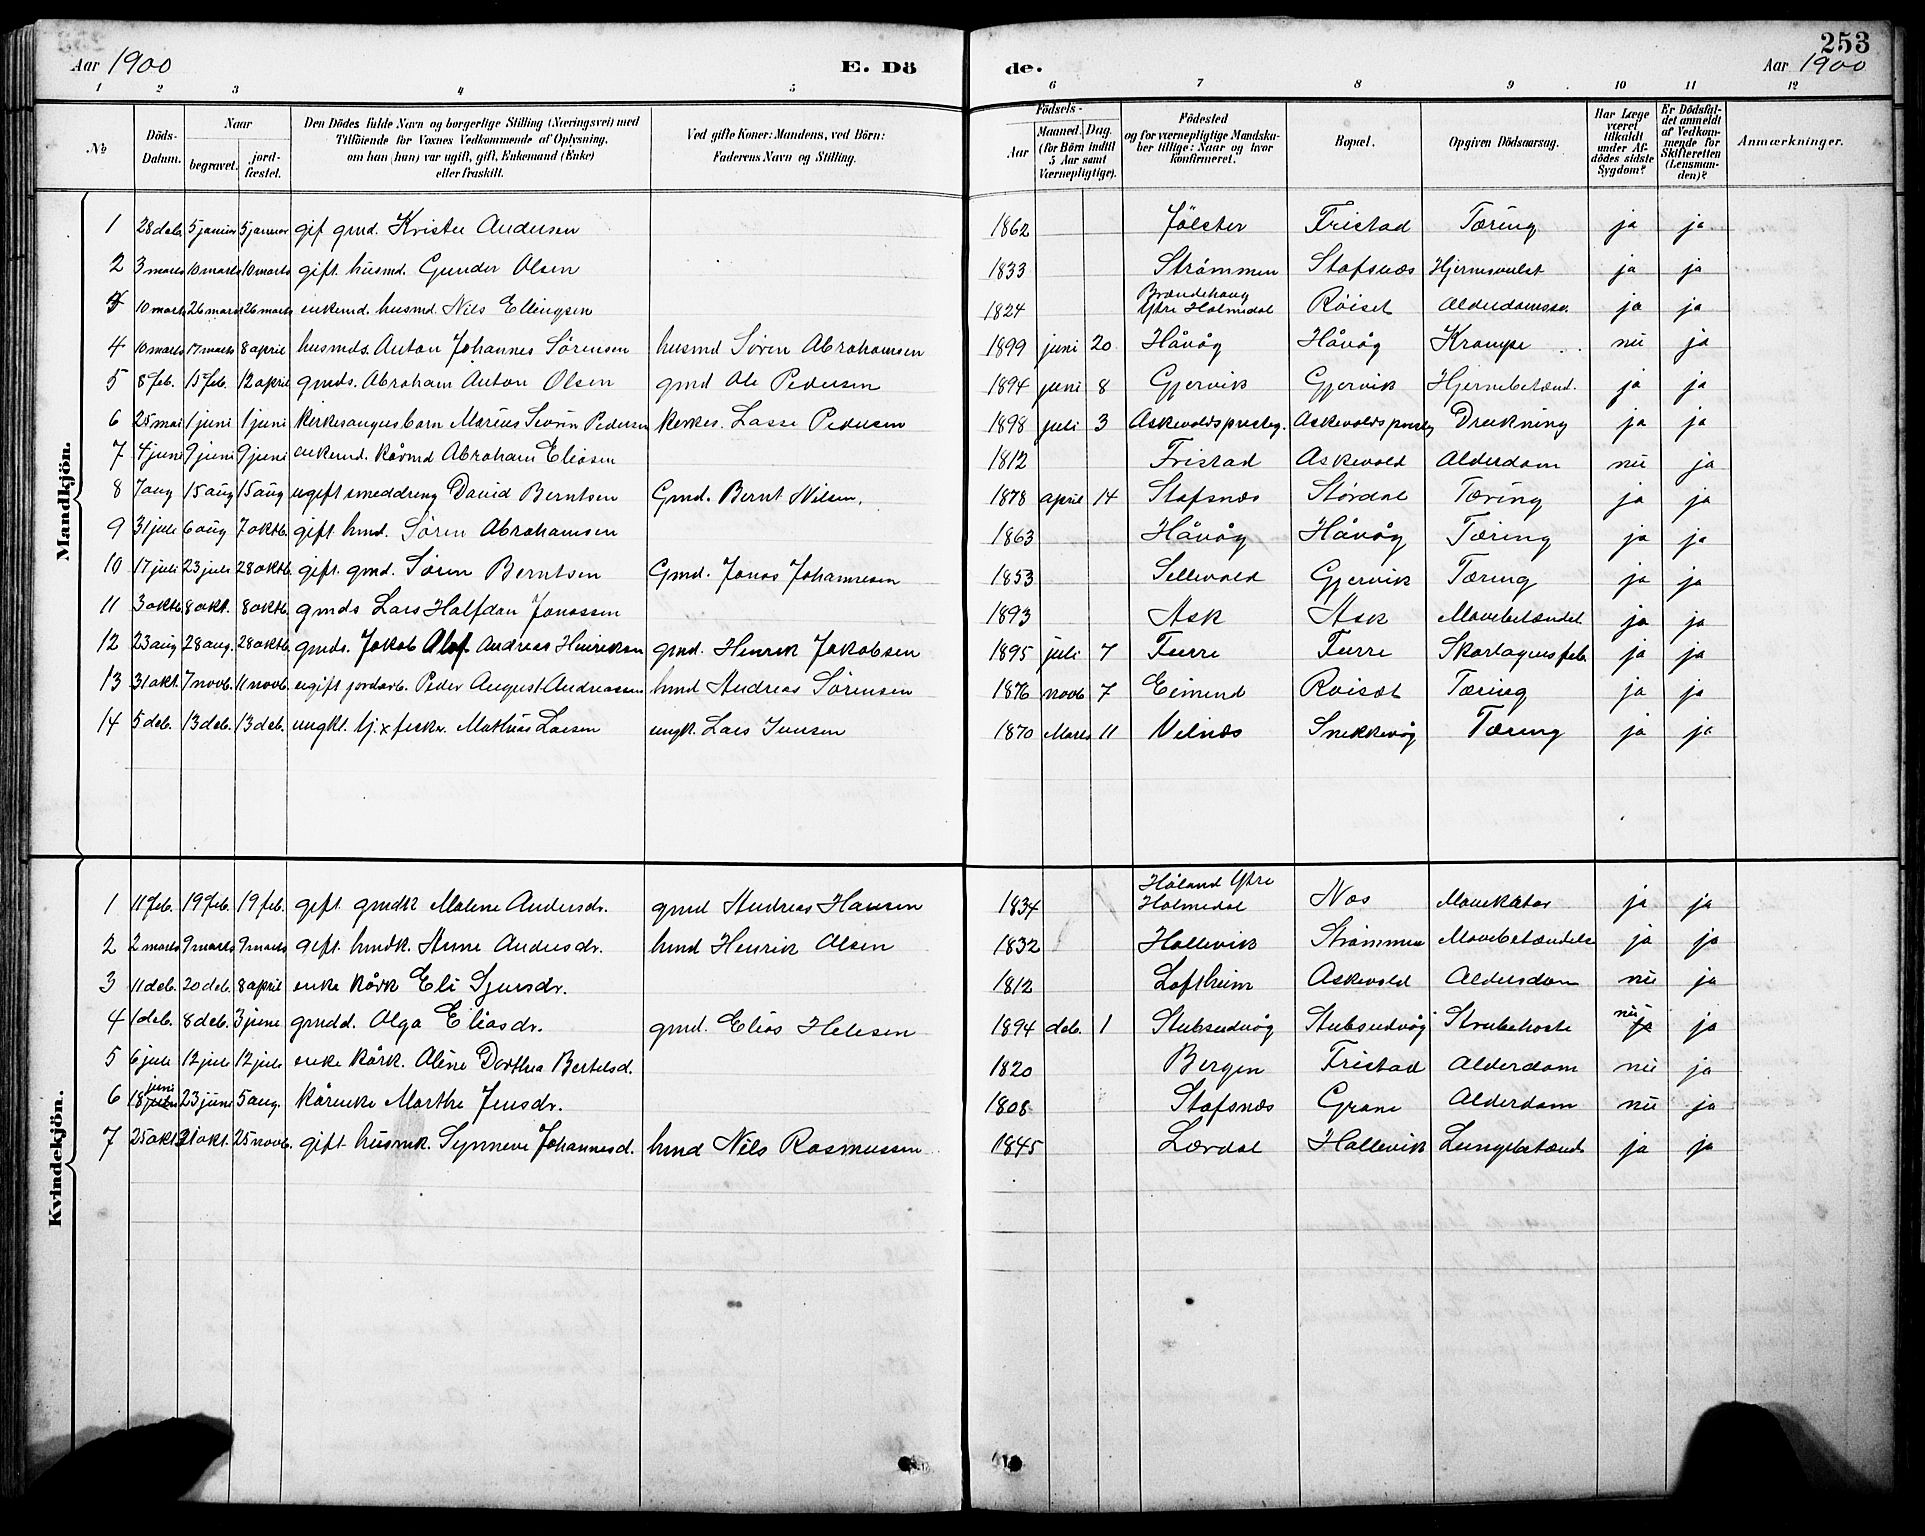 253
Aar 1900 E. Dö de. Aar 1900
1 2 3 4 5 6 7 8 9 10 11 12
№ Döds-Datum. Naar begravet. jordfæstet. Den Dödes fulde Navn og borgerlige Stilling (Næringsvei) med Tilföiende for Voxnes Vedkommende af Oplysning, om han (hun) var ugift, gift, Enkemand (Enke) eller fraskilt. Ved gifte Koner: Mandens, ved Börn: Faderens Navn og Stilling. Födsels- Aar Maaned. Dag. (for Börn indtil 5 Aar samt Værnepligtige). Födested og for værnepligtige Mandskaber tillige: Naar og hvor konfirmeret. Bopæl. Opgiven Dödsaarsag. Har Læge været tilkaldt under Afdödes sidste Sygdom? Er Dödsfaldet anmeldt af Vedkommende for Skifteretten (Lensmanden)? Anmærkninger.
Mandkjön.
1 28 deb. 5 januar 5 januar gif gmd. Krister Andersen 1862 Jölster Fristad Tæring ja ja
2 3 marts 10 marts 10 marts gift. husmd. Gunder Olsen 1833 Strömmen Stafsnæs Hjernesvulst ja ja
3 10 marts 26 marts 26 marts enkemd. husmd. Nils Ellingsen 1824 Brændehaug Ytre Holmedal Röiset Alderdomssv. ja ja
4 10 marts 17 marts 8 april husmds. Anton Johannes Sörensen husmd Sören Abrahamsen 1899 juni 20 Håvåg Håvåg Krampe nei ja
5 8 feb. 15 feb. 12 april gmds. Abraham Anton Olsen gmd Ole Pedersen 1894 juni 8 Gjervik Gjervik Hjernebetænd. ja ja
6 25 mai 1 juni 1 juni kirkesangers barn Marius Severin Pedersen kirkes. Lasse Pedersen 1898 juli 3 Askevolds presteg. Askevolds presteg Drukning ja ja
7 4 juni 9 juni 9 juni enkemd. kårmd Abraham Eliasen 1812 Fristad Askevold Alderdom nei ja
8 7 aug 15 aug 15 aug ugift smeddreng David Berntsen Gmd. Bernt Nilsen. 1878 april 14 Stafsnæs Stórdal Tæring ja ja
9 31 juli 6 aug 7 oktb. gift. hmd. Sören Abrahamsen 1863 Håvåg Håvåg Tæring ja ja
10 17 juli 23 juli 28 oktb. gift. gmd. Sören Berntsen Gmd. Jonas Johannesen 1853 Sellevold Gjervik Tæring ja ja
11 3 oktb. 8 okt. 8 oktb. gmds Lars Halfdan Jonassen 1893 Ask Ask Mavebetændel. ja ja
12 23 aug 28 aug. 28 oktb. gmds. Jakob Olaf Andreas Henriksen gmd. Henrik Jakobsen 1895 juli 7 Furre Furre Skarlagensfeb. ja ja
13 31 okt. 7 novb. 11 novb. ugift jordarb. Peder August Andreassen hmd Andreas Sörensen 1876 novb 7 Eimind Röiset Tæring ja ja
14 5 deb. 13 deb. 13 deb. ungkl. tj. x fisker. Mathias Larsen ungk. Lars Iversen 1870 Marts 11 Vilnæs Snekkevåg Tæring ja ja
Kvindekjön.
1 11 feb. 19 feb. 19 feb. gift. gmdk Malene Andersdr. gmd Andreas Hansen 1834 Höland Ytre Holmedal Nos Mavekatar ja ja
2 2 marts 9 marts 9 marts gift. hmdk. Anne Andersdr. hmd Henrik Olsen 1832 Hollevik Strömmen Mavebetændelse ja ja
3 11 deb. 20 deb. 8 april enke kårk Eli Sjursdr. 1812 Loftheim Askevold Aldersdom nei ja
4 1 deb. 8 deb. 3 june gmdd. Olga Eliasdr. gmd. Elias Helesen 1894 deb. 1 Stubsudvåg Stubsudvåg Strubehoste nei ja
5 6 juli 12 juli 12 juli enke kårk. Aline Dorthea Bertelsd. 1820 Bergen Fristad Alderdom nei ja
6 18 juni 23 juni 5 aug. kårenke Marthe Jensdr. 1808 Stafsnæs Grane Alderdom nei ja
7 25 okt. 31 okt. 25 novb. gift. husmk. Synneve Johannesd. hmd Nils Rasmussen 1845 Lærdal Hollevik Lungebetænd. ja ja